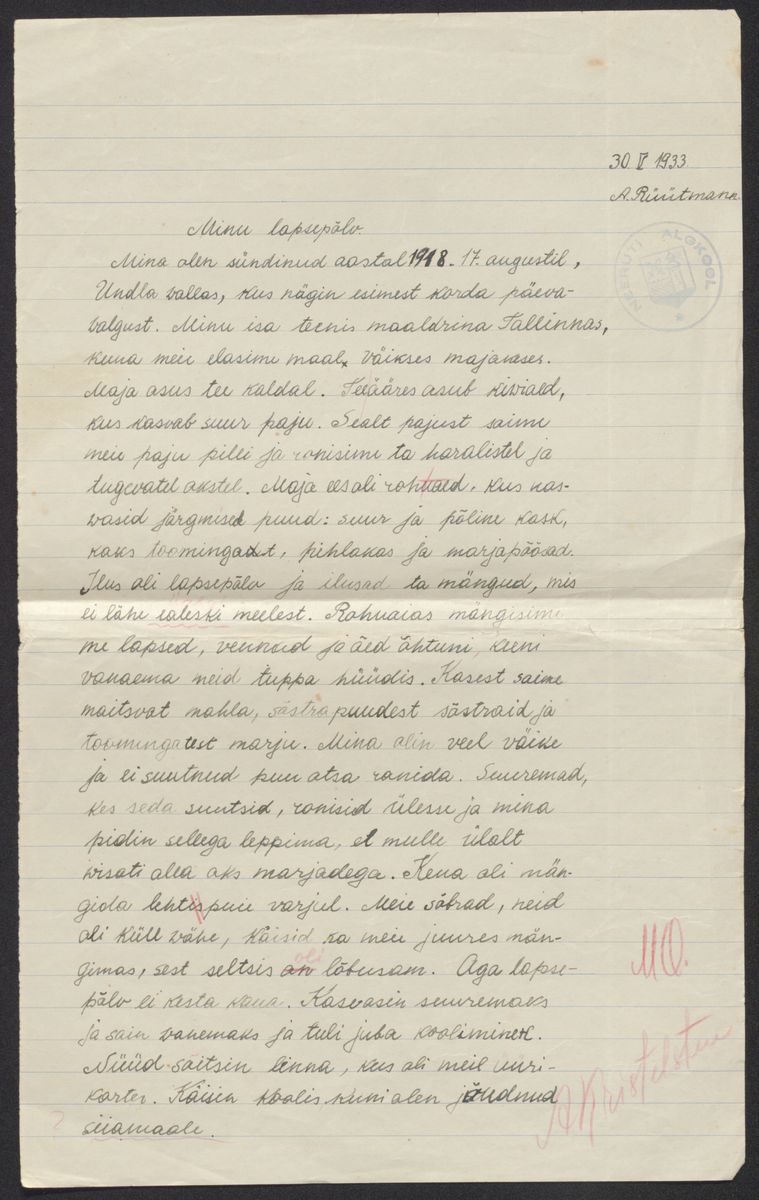 30 V 1933.
A. Rüütmann
NEERUTI ALGKOOL
Minu lapsepõlv.
Mina olen sündinud aastal 1918. 17. augustil,
Undla vallas, kus nägin esimest korda päeva-
valgust. Minu isa teenis maaldrina Tallinnas,
kuna meie elasime maal, väikses majakeses.
Maja asus tee kaldal. Teeääres asub kiwiaed,
kus kasvab suur paju. Sealt pajust saime
meie paju pilli ja ronisime ta haralistel ja
tugevatel okstel. Maja ees oli rohuaed, kus kas-
wasid järgmised puud: suur ja põline kask,
kaks toomingat, pihlakas ja marjapõõsad.
Ilus oli lapsepõlv ja ilusad ta mängud, mis
ei lähe ealeski meelest. Rohuaias mängisime
me lapsed, vennad ja õed õhtuni, kuni
vanaema meid tuppa hüüdis. Kasest saime
maitsvat mahla, sõstrapuudest sõstraid ja
toomingatest marju. Mina olin veel väike
ja ei suutnud puu otsa ronida. Suuremad,
kes seda suutsid, ronisid ülesse ja mina
pidin sellega leppima, et mulle ülalt
wisati alla oks marjadega. Kena oli män-
gida lehtispuie varjul. Meie sõbrad, neid
oli küll wähe, käisid ka meie juures män-
gimas, sest seltsis on oli lõbusam. Aga lapse-
põlv ei kesta kaua. Kasvasin suuremaks
ja sain vanemaks ja tuli juba kooliminek.
Nüüd sõitsin linna, kus oli meil üüri-
korter. Käisin koolis kuni olen jõudnud
siiamaale.